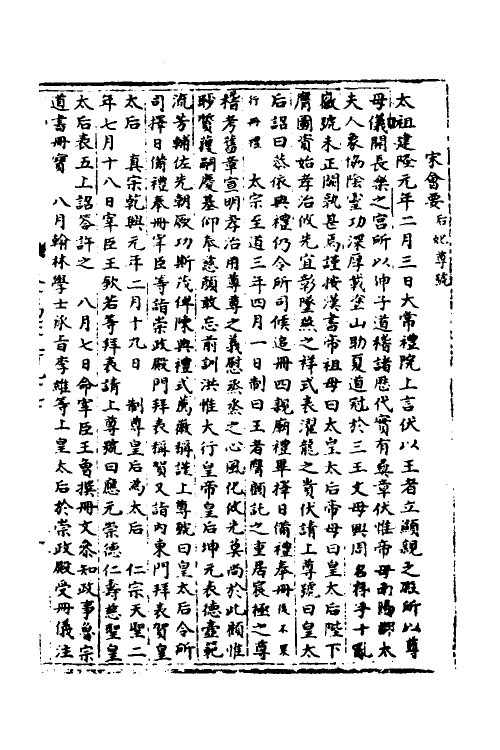 宋會要 后妃尊號
太祖建隆元年二月三日大常禮院上言伏以王者立願親之殿所以尊
母儀開長樂之宮所以伸子道稽諸歷代實有彝章伏惟帝母南陽郡太
夫人象協陰靈功深厚載塗山助夏道冠於三王文母興周名梓乎十亂
徽號未正闕孰甚焉謹按漢書帝祖母曰太皇太后帝母曰皇太后陛下
膺圖資始孝治攸先宜彰墜典之祥式表濯龍之貴伏請上尊號曰皇太
后詔曰恭依典禮仍令所司候追冊四親廟禮畢擇日備禮奉冊後不果
行冊禮 太宗至道三年四月一日制曰王者膺顧託之重居宸極之尊
稽考舊章宣明孝治用尊尊之義慰烝烝之心風化攸先莫尚於此顧惟
眇質獲嗣慶基仰奉慈顏敢忘前訓洪惟大行皇帝皇后坤元表德壼範
流芳輔佐先朝厥功斯茂俾陳典禮式薦徽稱謹上尊號曰皇太后令所
司擇日備禮奉冊宰臣等詣崇政殿門拜表稱賀又詣內東門拜表賀皇
太后 真宗乾興元年二月十九日 制尊皇后為太后 仁宗天聖二
年七月十八日宰臣王欽若等拜表請上尊號曰應元崇德仁壽慈聖皇
太后表五上詔答許之 八月七日命宰臣王曾撰冊文參知政事魯宗
道書冊寶 八月翰林學士承旨李維等上皇太后於崇政殿受冊儀注